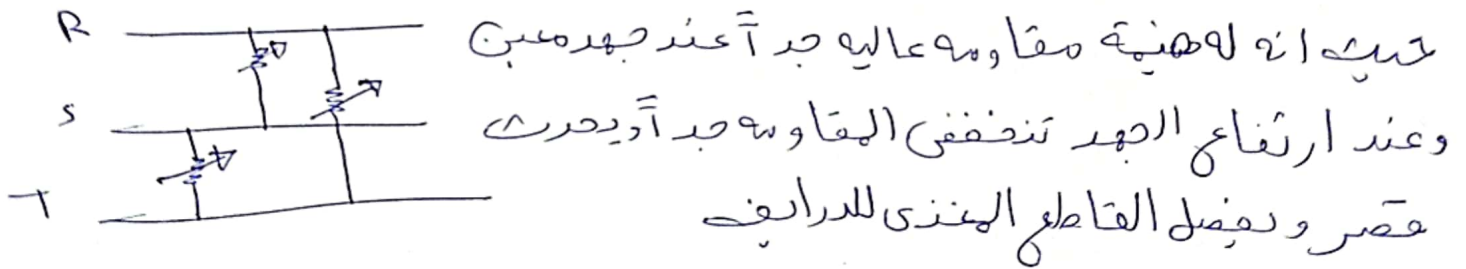 R
S
T
حيث انه له قيمة مقاومه عاليه جداً عند جهد معين
وعند ارتفاع الجهد تنخفض المقاومه جداً ويحدث
قصر ويفصل القاطع المغذى للدرايف